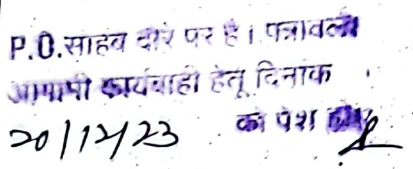 P.O.साहव दौरे पर है। पत्रावली
आगामी कार्यवाही हेतू दिनांक
20/12/23 को पेश हो।